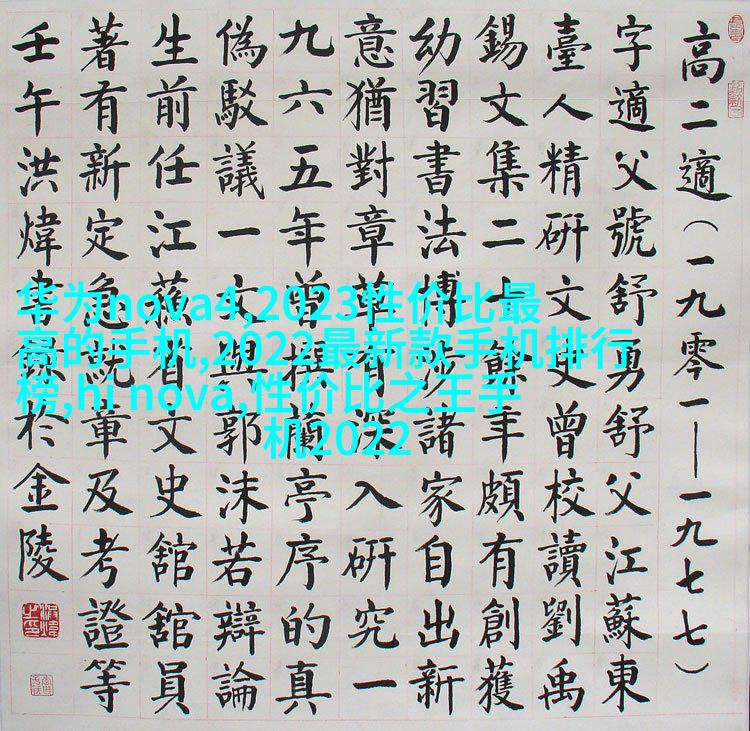 高二適（一九零一——一九七七）
字適父號舒勇舒父江蘇東
臺人精研文史曾校讀劉禹
錫文集二十餘年頗有創獲
幼習書法博涉諸家自出新
意猶對章草有深入研究一
九六五年曾撰蘭亭序的真
偽駁議一文與郭沫若辯論
生前任江蘇省文史舘舘員
著有新定急就章及考證等
壬午洪煒書錄於金陵
华为nova4,2023性价比最
高的手机,2022最新款手机排行
榜,hi nova,性价比之王手
机2022